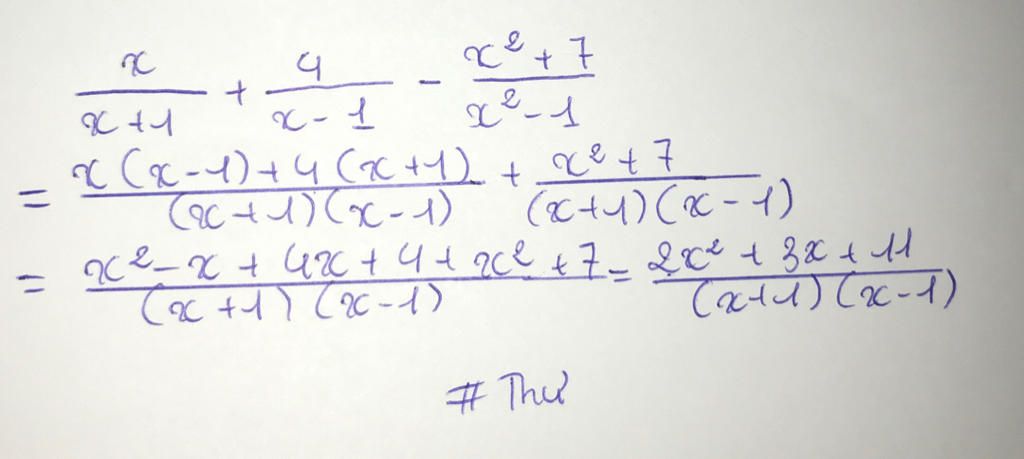 x/(x+1) + 4/(x-1) - (x²+7)/(x²-1)
= (x(x-1)+4(x+1))/((x+1)(x-1)) + (x²+7)/((x+1)(x-1))
= (x²-x+4x+4+x²+7)/((x+1)(x-1)) = (2x²+3x+11)/((x+1)(x-1))
# Thư